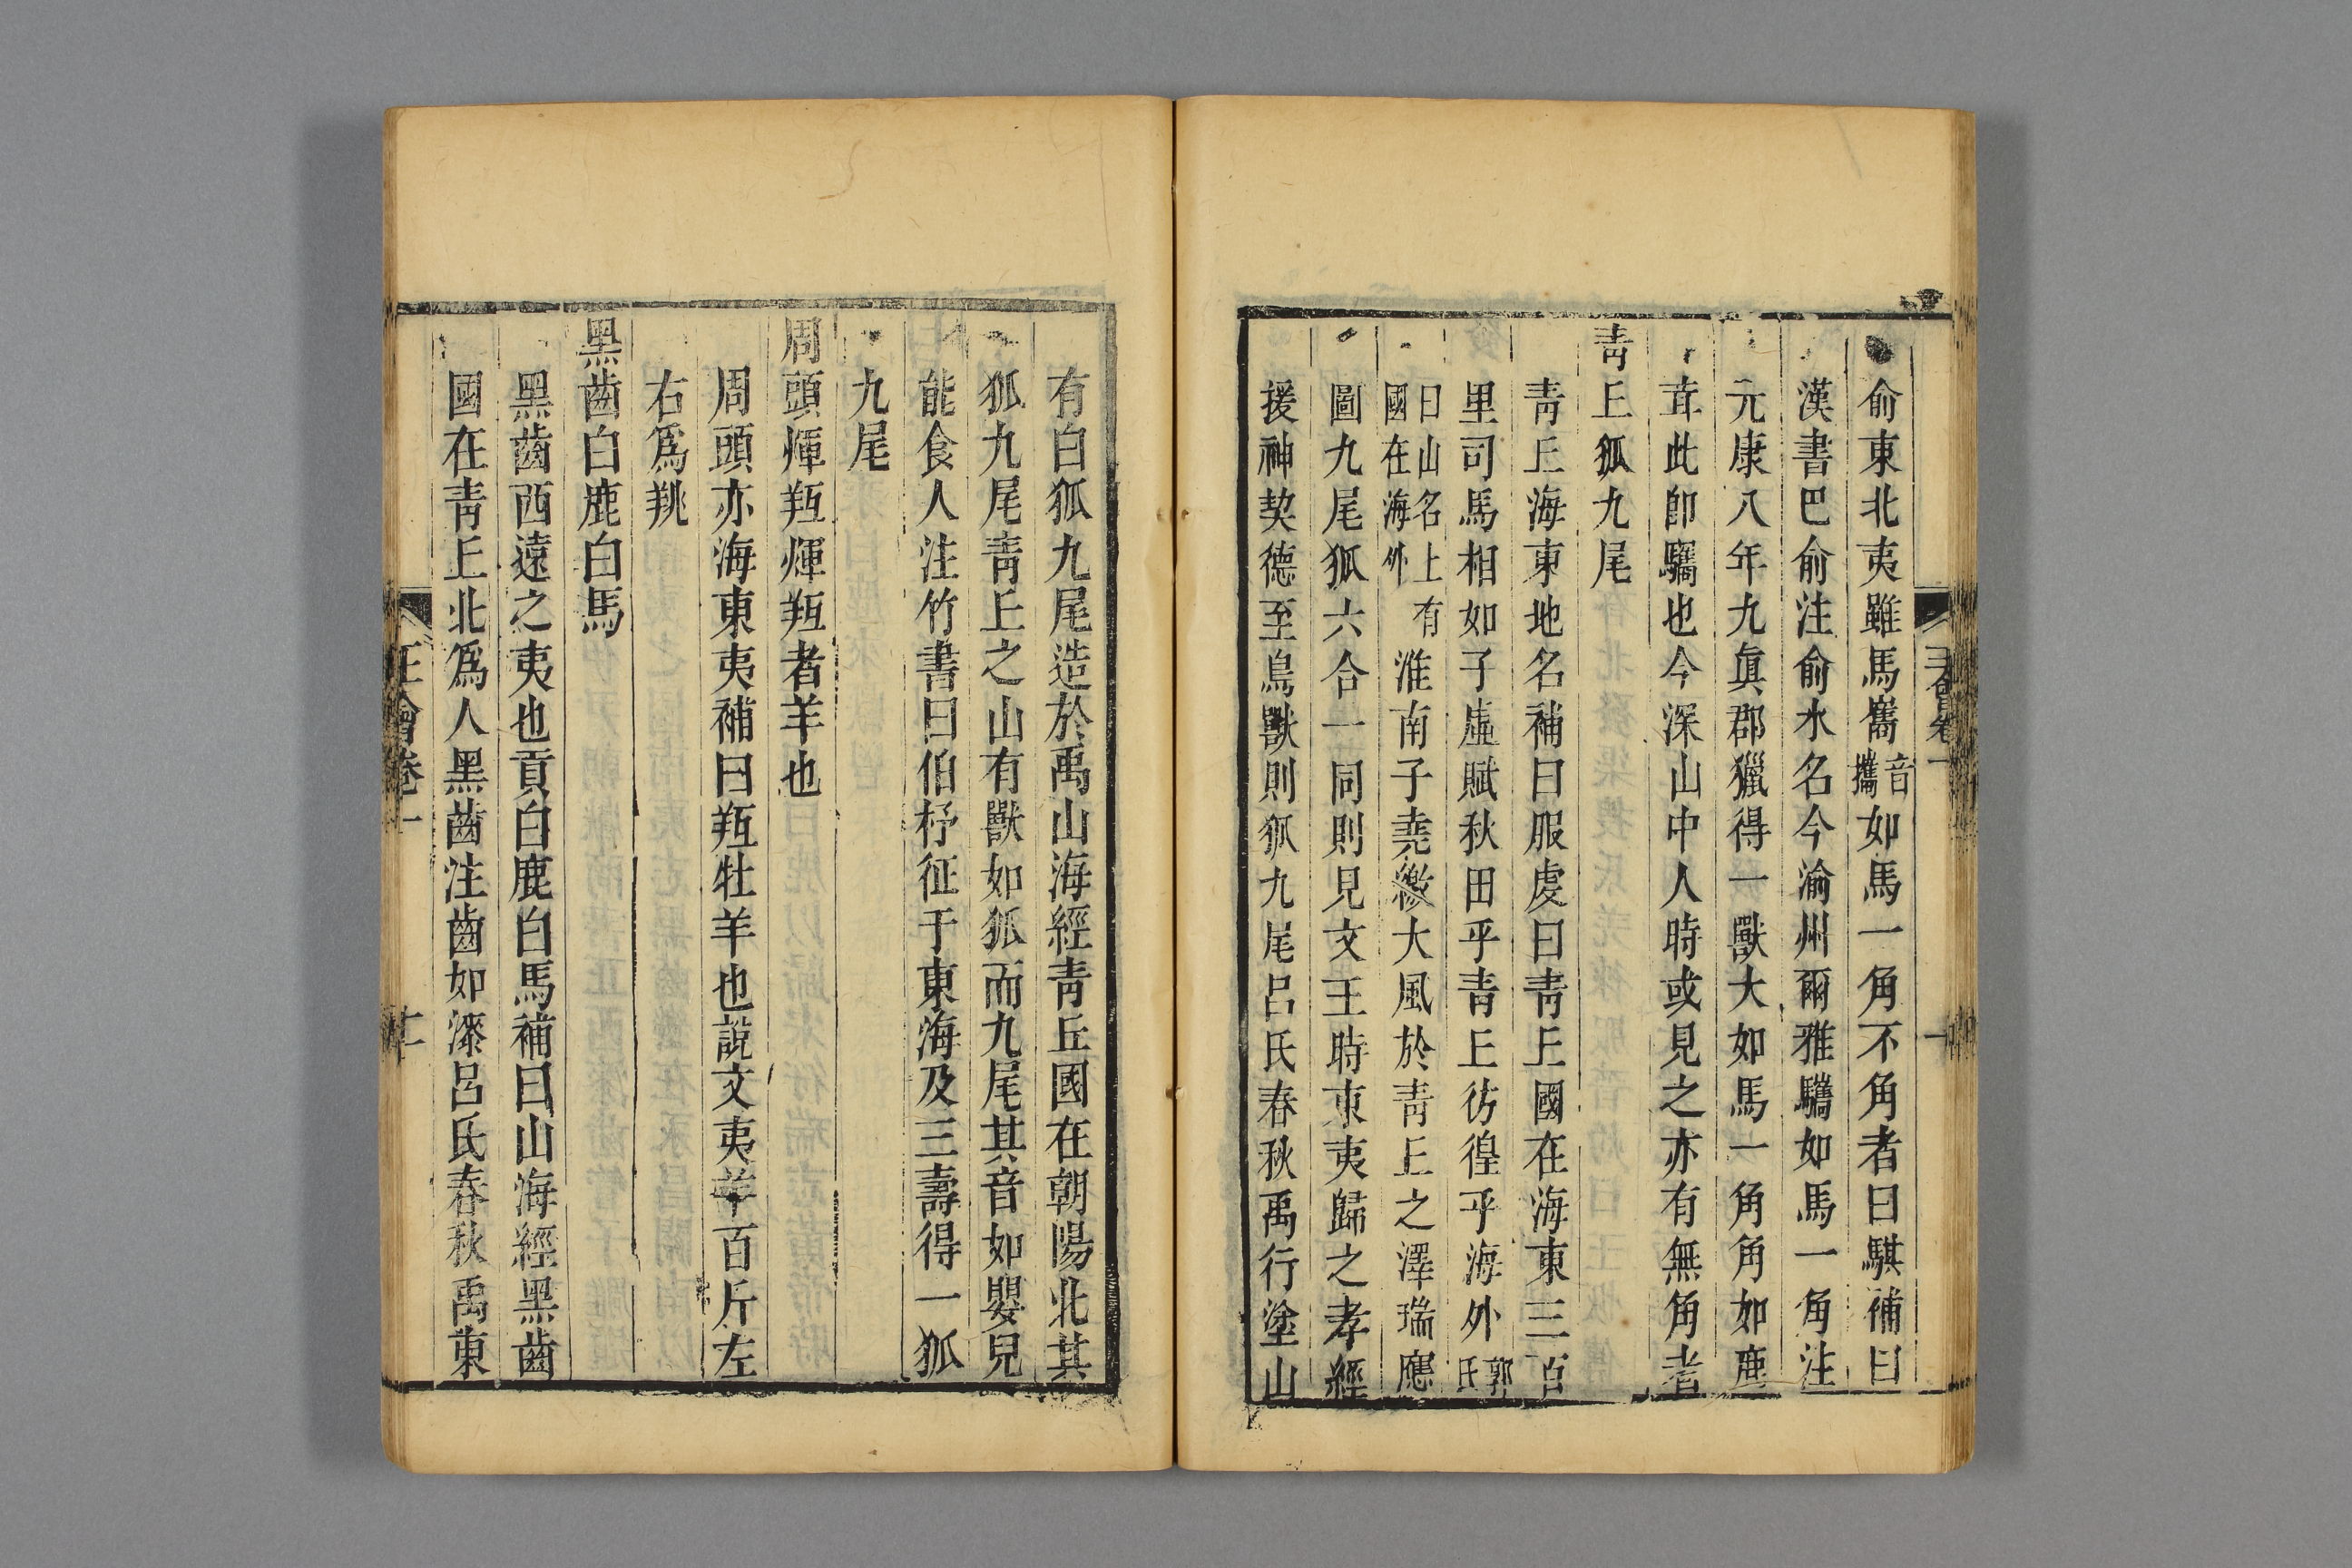 俞東北夷雖馬巂音攜如馬一角不角者曰騏補曰
漢書巴俞注俞水名今渝州爾雅驨如馬一角注
元康八年九真郡獵得一獸大如馬一角角如鹿
茸此卽驨也今深山中人時或見之亦有無角者
青丘狐九尾
青丘海東地名補曰服虔曰青丘國在海東三百
里司馬相如子虛賦秋田乎青丘彷徨乎海外郭氏
曰山名上有國在海外淮南子堯繳大風於青丘之澤瑞應
圖九尾狐六合一同則見文王時東夷歸之孝經
援神契德至鳥獸則狐九尾呂氏春秋禹行塗山
有白狐九尾造於禹山海經青丘國在朝陽北其
狐九尾青丘之山有獸如狐而九尾其音如嬰兒
能食人注竹書曰伯杼征于東海及三壽得一狐
九尾
周頭煇羝煇羝者羊也
周頭亦海東夷補曰羝牡羊也說文夷羊百斤左
右爲羠
黑齒白鹿白馬
黑齒西遠之夷也貢白鹿白馬補曰山海經黑齒
國在青丘北爲人黑齒注齒如漆呂氏春秋禹東
王會卷一